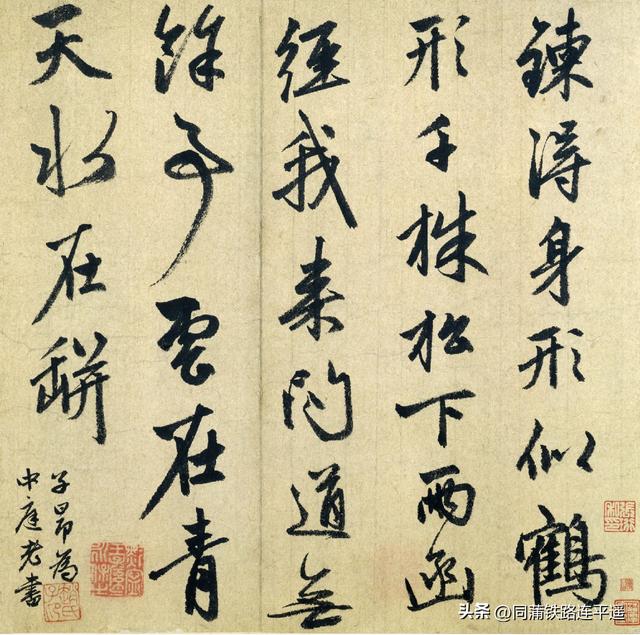 鍊得身形似鶴
形千株松下兩函
經我来問道無
餘事雲在青
天水在缾
子昂為
中庭老書
头条 @同蒲铁路连平遥